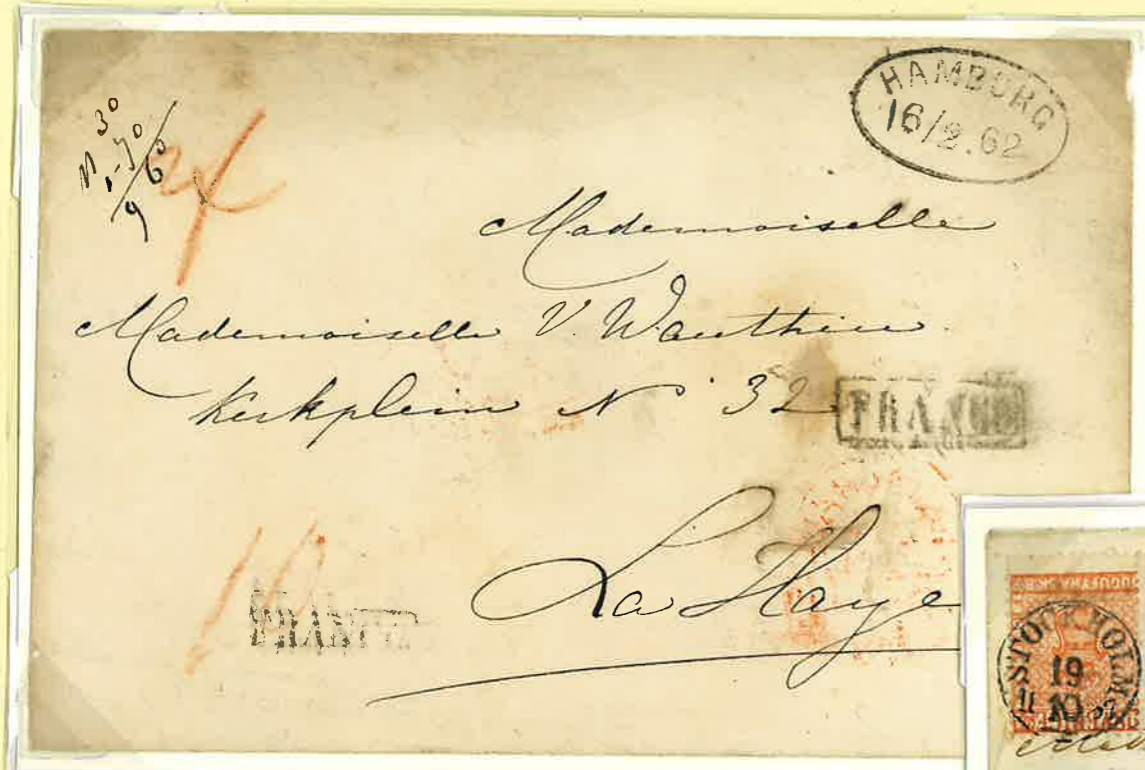 HAMBURG
16/2.62
30
Mademoiselle
Mademoiselle V. Wauthier
Kerkplein No 32
FRANCO
La Haye
10
STOCKHOLM
19
10